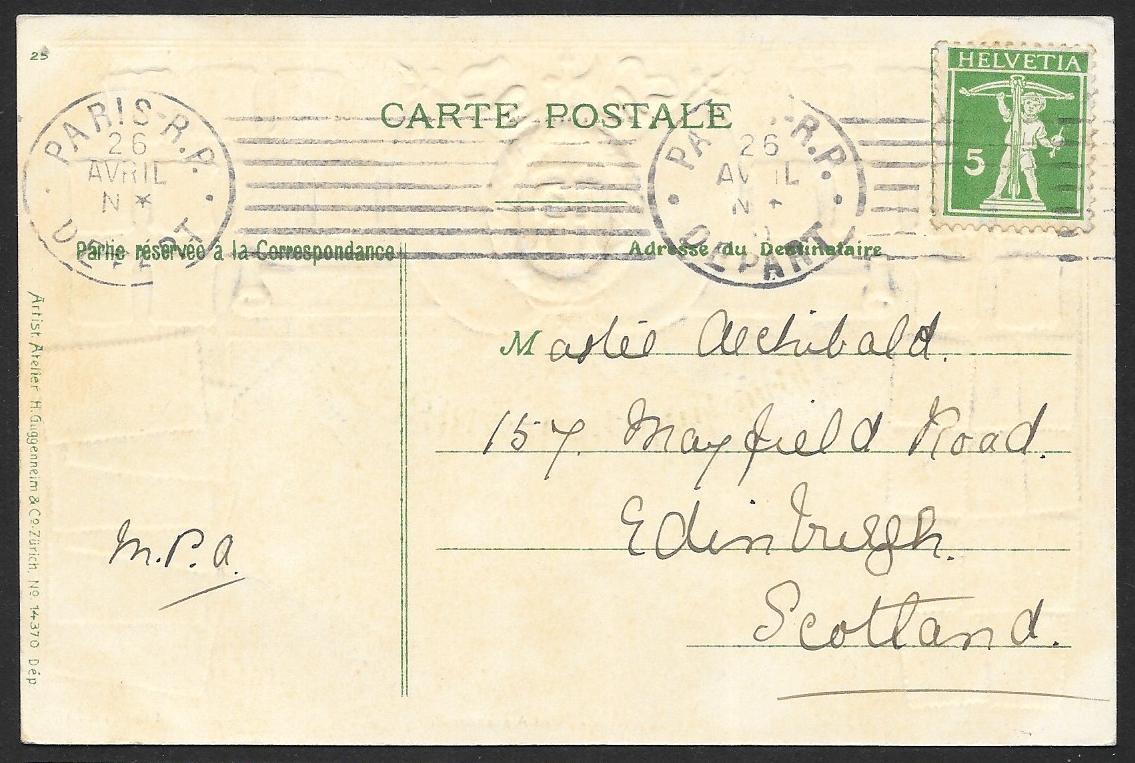 25
CARTE POSTALE
HELVETIA
5
PARIS-R.P.
26
AVRIL
N *
DEPART
PARIS-R.P.
26
AVRIL
N *
DEPART
Partie réservée à la Correspondance
Adresse du Destinataire
Archibald.
157 Mayfield Road.
Edinburgh.
Scotland.
M.P.A.
Artist. Atelier H. Guggenheim & Co. Zürich. No. 14370 Dép